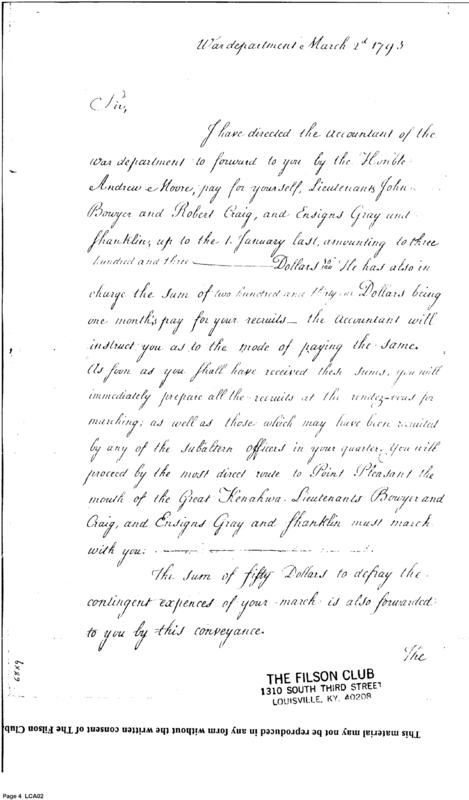 War department March 2d 1793
Sir,
I have directed the Accountant of the
war department to forward to you by the Honble
Andrew Moore, pay for yourself, Lieutenants John
Bowyer and Robert Craig, and Ensigns Gray and
Shanklin, up to the 1. January last, amounting to three
hundred and three Dollars He has also in
charge the sum of two hundred and thirty Dollars being
one month's pay for your recruits — the Accountant will
instruct you as to the mode of paying the same.
As soon as you shall have received these sums, you will
immediately prepare all the recruits at the rendez-vous for
marching; as well as those which may have been recruited
by any of the subaltern officers in your quarter. You will
proceed by the most direct route to Point Pleasant the
mouth of the Great Kenahwa. Lieutenants Bowyer and
Craig, and Ensigns Gray and Shanklin must march
with you.
The sum of fifty Dollars to defray the
contingent expences of your march is also forwarded
to you by this conveyance.
The
THE FILSON CLUB
1310 SOUTH THIRD STREET
LOUISVILLE, KY. 40208
This material may not be reproduced in any form without the written consent of The Filson Club.
Page 4 LCA02